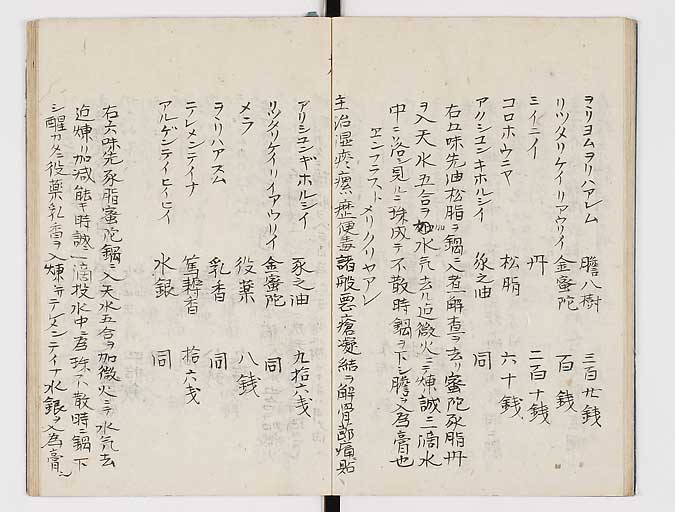 ヲリヨムヲリハアレム 膽八樹 三百廿銭
リツタリケイリアウリイ 金蜜陀 百銭
ミイニイ 丹 二百十銭
コロホウニヤ 松脂 六十銭
アクシユンキホルシイ 豕之油 同
右五味先油松脂ヲ鍋ニ入煮解査ヲ去リ蜜陀豕脂丹
ヲ入天水五合ヲ加水気去ル迄微火ニテ煉誠ニ一滴水
中ニ落シ見ルニ珠成テ不散時鍋ヲ下シ膽ヲ入為膏也
ヱンフラスト メリクリヤアレ
主治湿疼瘰歴便毒諸般悪瘡凝結ヲ解骨節痛貼
アリシユンギホルシイ 豕之油 九拾六戔
リツタリケイリイアウリイ 金蜜陀 同
メラ 役薬 八銭
ヲリハアスム 乳香 同
テレメンテイナ 篤耨香 拾六戔
アルゲンテイヒイヒイ 水銀 同
右六味先豕脂蜜陀鍋ニ入天水五合ヲ加微火ニテ水気去
迄煉リ加減能キ時誠ニ一滴投水中ニ為珠不散時ニ鍋下
シ醒カタニ役薬乳香ヲ入煉テレメンテイナ水銀ヲ入為膏